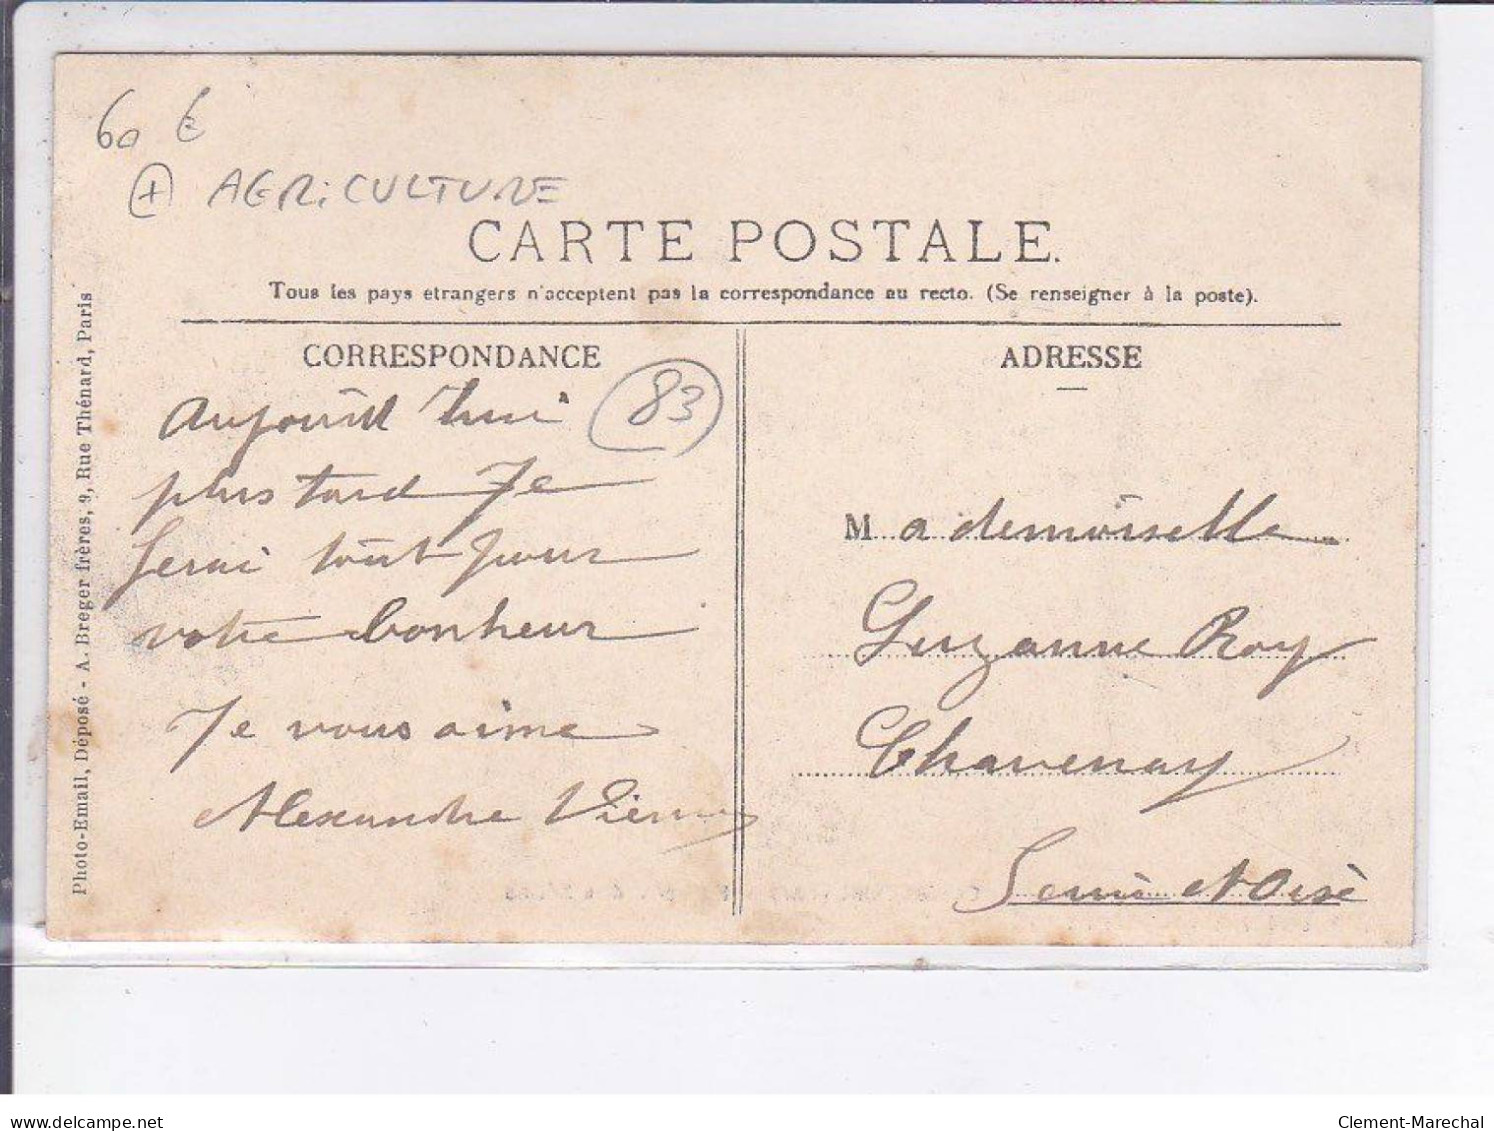 60 €
+ AGRiCULTURE
CARTE POSTALE.
Tous les pays etrangers n'acceptent pas la correspondance au recto. (Se renseigner à la poste).
CORRESPONDANCE
83
aujourd hui
plus tard Je
ferai tout pour
votre bonheur
Je vous aime
Alexandre
ADRESSE
Mademoiselle
Suzanne Roy
Chavenay
Seine et Oise
Photo-Email, Déposé - A. Breger frères, 9, Rue Thénard, Paris
delcampe.net
Clement-Marechal